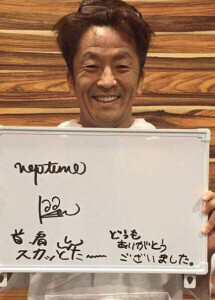 neptune
首肩
スカッとした〜
どうも
ありがとう
ございました。